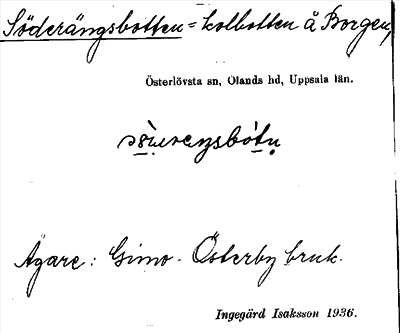 Söderängsbotten = kolbotten å Borgen,
Österlövsta sn, Olands hd, Uppsala län.
Ägare: Gimo-Österby bruk.
Ingegärd Isaksson 1936.